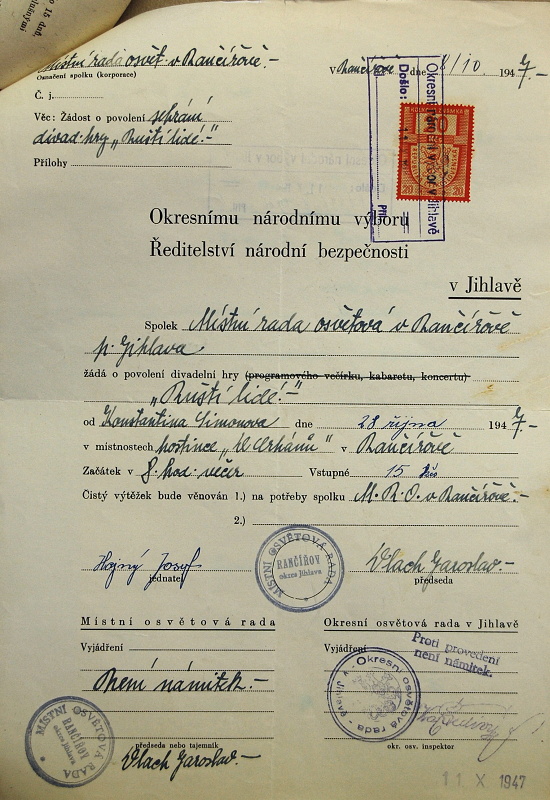 o 15 dnů,
Místní rada osvět. v Rančířově.-
V Rančířově dne 8/10 1947.-
Označení spolku (korporace)
Č. j.
Věc: Žádost o povolení sehrání
divad. hry „Ruští lidé.-"
Přílohy
Okresní národní výbor v Jihlavě
Došlo:
Příl.
KOLKOVÁ ZNÁMKA
Kčs
20 20
Okresnímu národnímu výboru
Ředitelství národní bezpečnosti
v Jihlavě
Spolek Místní rada osvětová v Rančířově
p. Jihlava
žádá o povolení divadelní hry (programového večírku, kabaretu, koncertu)
„Ruští lidé.-"
od Konstantina Simonova dne 28 října 1947.-
v místnostech hostince „U Urbánů" v Rančířově
Začátek v 8. hod. večer Vstupné 15 Kčs
Čistý výtěžek bude věnován 1.) na potřeby spolku M. R. O. v Rančířově.-
2.)
Hojný Josef
Vlach Jaroslav.-
jednatel
předseda
MÍSTNÍ OSVĚTOVÁ RADA
RANČÍŘOV
okres Jihlava
Místní osvětová rada
Okresní osvětová rada v Jihlavě
Vyjádření
Vyjádření
Proti provedení
není námitek.
Není námitek.-
Okresní osvětová rada v Jihlavě
MÍSTNÍ OSVĚTOVÁ RADA
RANČÍŘOV
okres Jihlava
předseda nebo tajemník
okr. osv. inspektor
Vlach Jaroslav.-
11 X 1947